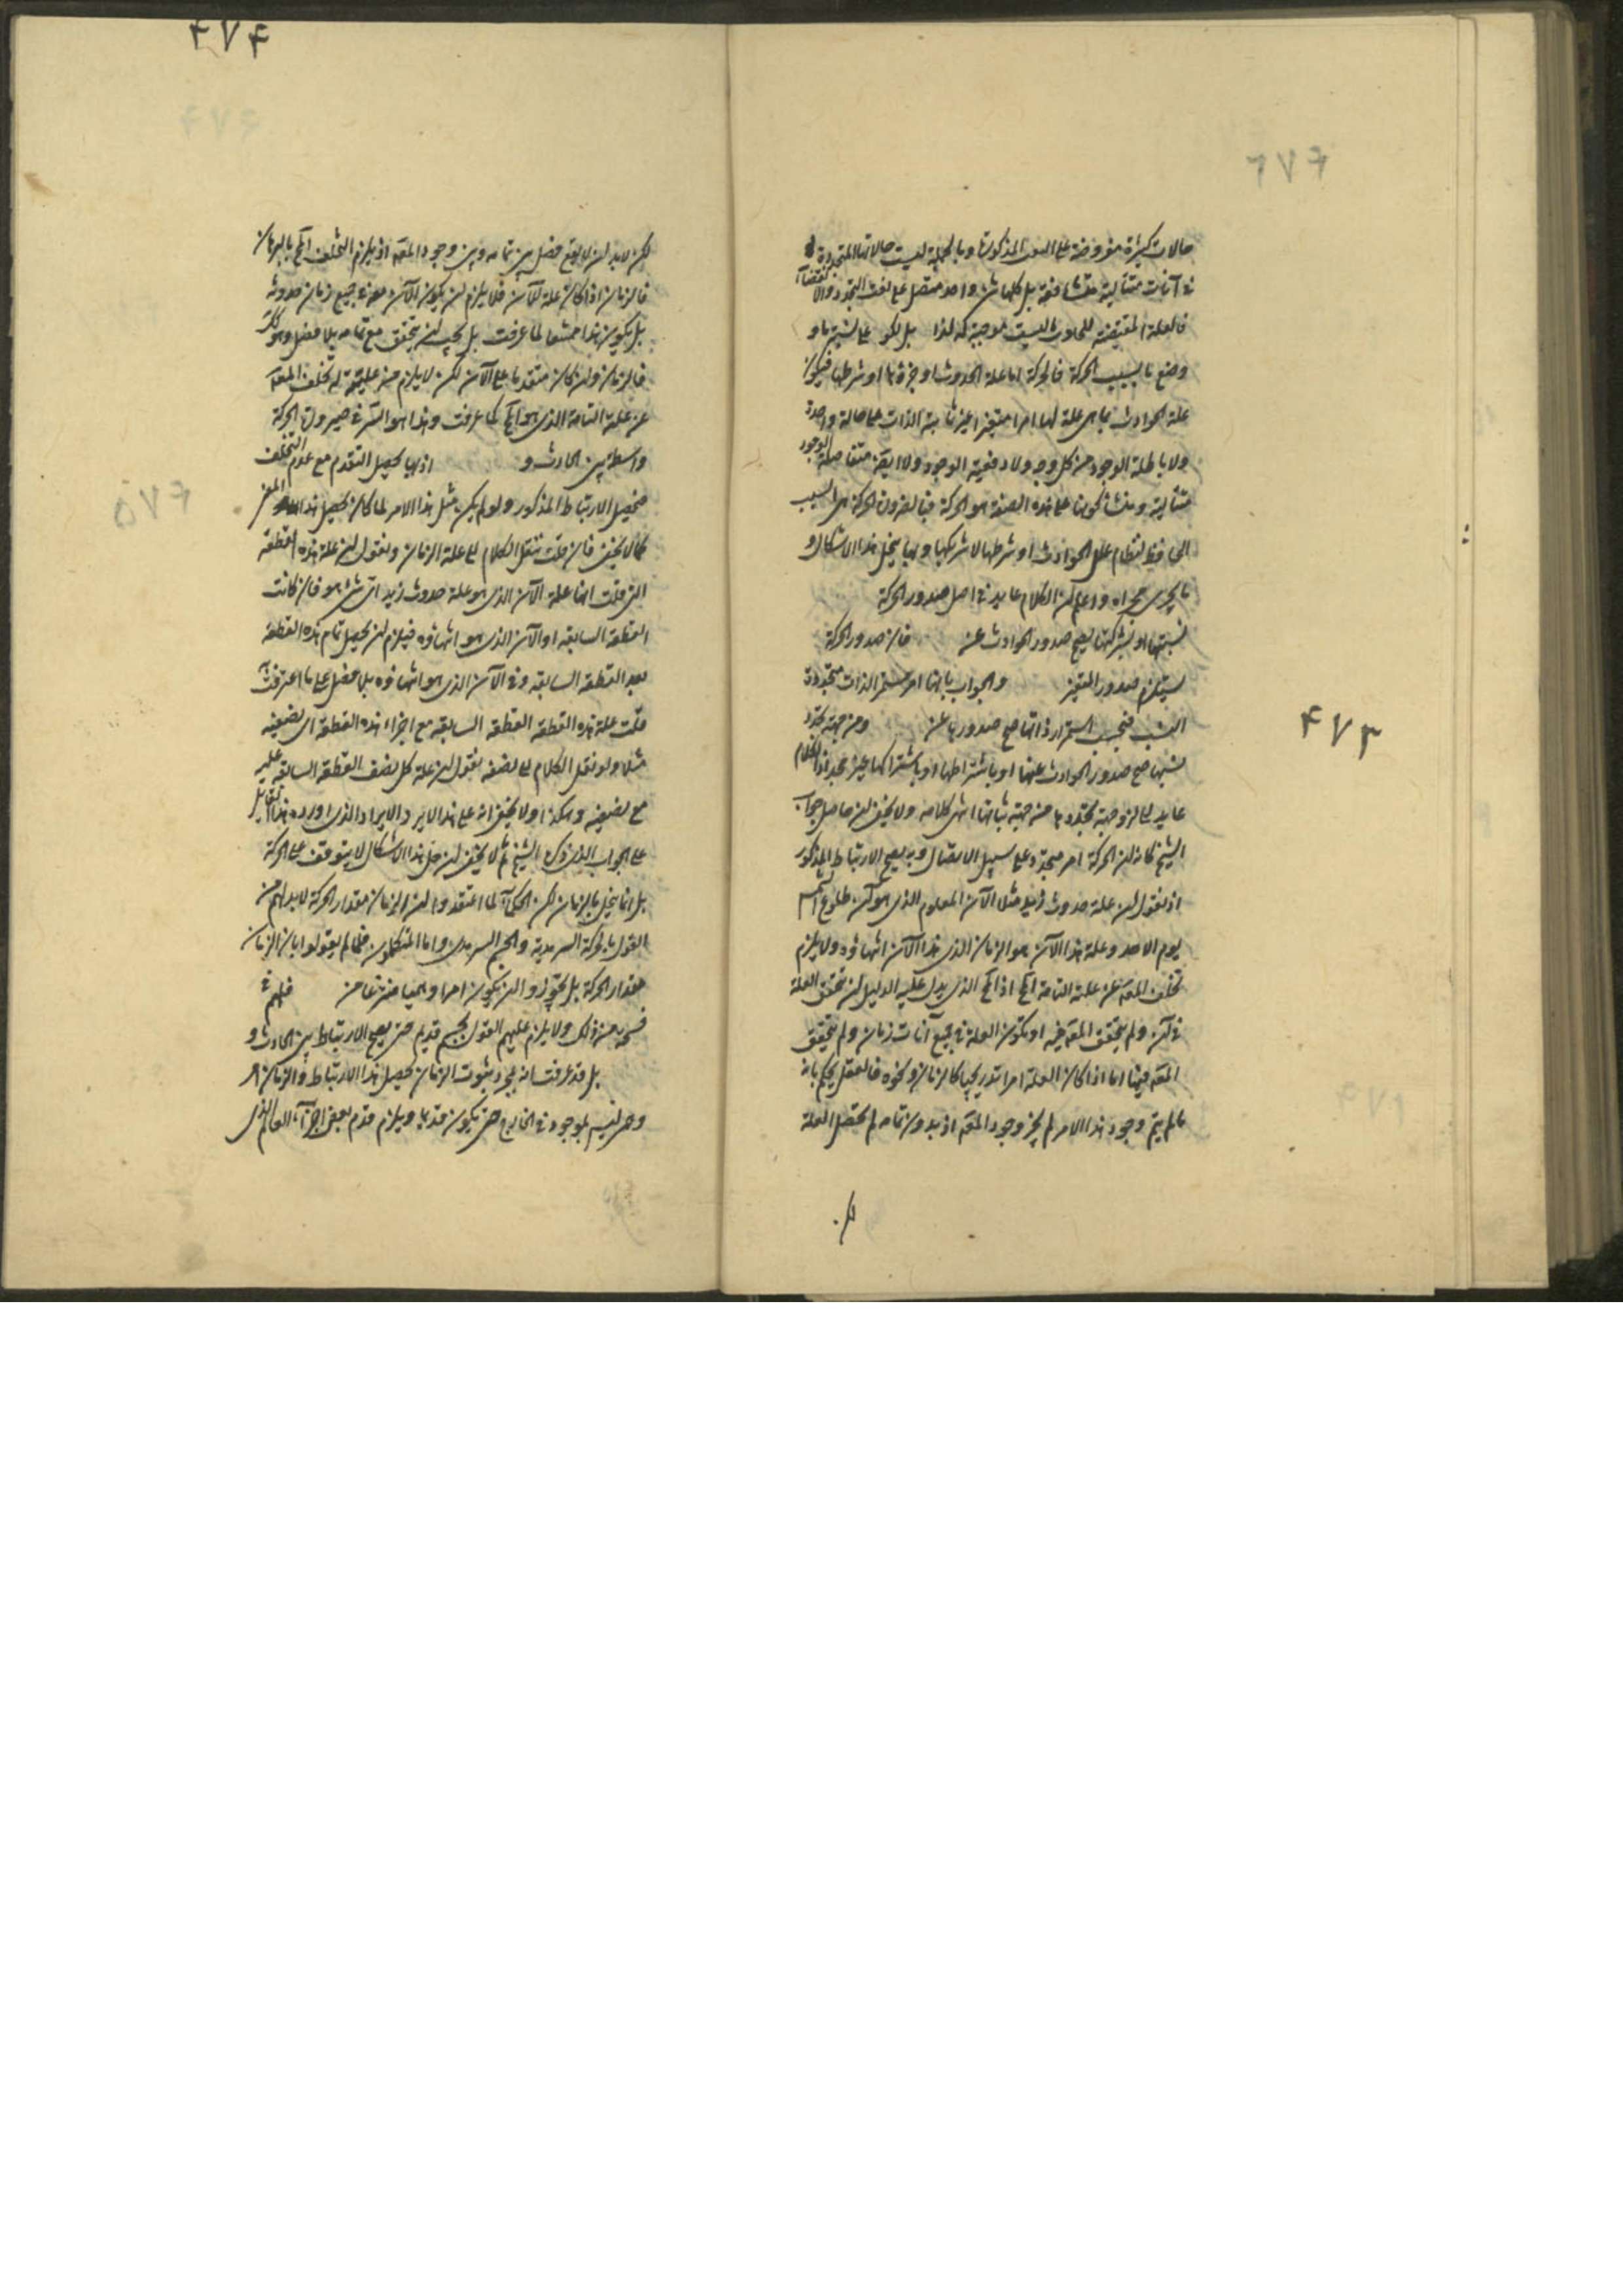 حالات كثيرة مفروضة على النعت المذكور وبالجملة ليست حالاتها المتجددة
فى آنات متتالية متشافعة بل كلها شئ واحد متصل على نعت التجدد والانقضاء
فالعلة المقتضية للحادث ليست موجبة له لذا بل لكو على نسبة ما و
وضع ما بسبب الحركة فالحركة اما علة الحدوث او جزؤها او شرطها فيكون
علة الحوادث بما هى علة لها امرا متغيرا غير ثابتة الذات على حالة واحدة
ولا باطلة الوجود من كل وجه ولا دفعية الوجود ولا ايضا متفاصلة الوجود
متتالية ومنشأ كونها على هذه الصفة هو الحركة فبالضرورة الحركة هى السبب
الحافظ لنظام علل الحوادث او شرطها لاشركها وبها ينحل هذا الاشكال و
ما يجرى مجراه واعلم ان الكلام عايد فى اصل صدور الحركة
نسبتها او بشركتها يصح صدور الحوادث عن فان صدور الحركة
يستلزم صدور المتغير والجواب بانها امر مستمر الذات متجددة
النسب فبحسب استمرار ذاتها صح صدورها عن ومن جهة تجدد
نسبها صح صدور الحوادث عنها او باشتراطها او باشتراكها غير مجد اذ الكلام
عايد الى لزوم جهة تجددها من جهة ثباتها انتهى كلامه ولا يخفى ان حاصل جواب
الشيخ كانه ان الحركة امر متجدد على سبيل الاتصال وبه يصح الارتباط المذكور
اذ نقول ان علة حدوث زيد مثلا الآن المعلوم الذى هو آن طلوع الشمس
يوم الاحد وعلة هذا الآن هو الزمان الذى هذا الآن انتهاؤه ولا يلزم
تخلف المعلول عن علته التامة المح اذ المح الذى يدل عليه الدليل ان تتحقق العلة
فى آن ولم يتحقق المعلول فيه او يكون العلة فى جميع آنات زمان ولم يتحقق
المعلول فيها اما اذا كان العلة امرا تدريجيا كالزمان ونحوه فالعقل يحكم بانه
ما لم يتم وجود هذا الامر لم يجز وجود المعلول اذ بدون تمامه لم تحصل العلة
لكن
۴۷۳
۴۷۴
لكن لا بد ان لا يقع فصل بين تمامه وبين وجود المعلول اذ يلزم التخلف المح بالبرهان
فالزمان اذا كان علة للآن فلا يلزم ان يكون الآن موجودا فى جميع زمان حدوثه
بل يكون هذا ممتنعا لما عرفت بل يجب ان يتحقق مع تمامه بلا فصل وهو كذلك
فالزمان وان كان متقدما على الآن لكن لا يلزم من عليته له تخلف المعلول
عن علته التامة الذى هو المح كما عرفت وهذا هو السر فى صيرورة الحركة
واسطة بين الحادث و اذ بها يحصل التقدم مع عدم التخلف
فيحصل الارتباط المذكور ولو لم يكن مثل هذا الامر لما كان يحصل هذا المعنى
كما لا يخفى فان قلت ننقل الكلام الى علة الزمان ونقول ان علة هذه القطعة
التى قلت انها علة الآن الذى هو علة حدوث زيد اى شئ هو فان كانت
القطعة السابقة او الآن الذى هو انتهاؤه فيلزم ان يحصل تمام هذه القطعة
بعد القطعة السابقة وفى الآن الذى هو انتهاؤه بلا فصل على ما اعترفت
قلت علة هذه القطعة القطعة السابقة مع اجزاء هذه القطعة اى نصفيه
مثلا ولو نقل الكلام الى نصفه نقول ان علة كل نصف القطعة السابقة عليه
مع نصفيه وهكذا ولا يخفى انه على هذا لا يرد الايراد الذى اورده هذا القايل
على الجواب الذى ذكره الشيخ ثم لا يخفى ان حل هذا الاشكال لا يتوقف على الحركة
بل انما ينحل بالزمان لكن الحكماء لما اعتقدوا ان الزمان مقدار الحركة لا بد لهم من
القول بالحركة السرمدية والجسم السرمدى واما المتكلمون فلما لم يقولوا بان الزمان
مقدار الحركة بل يجوزوا ان يكون امرا وهميا منتزعا من فلهم فى
فسحة من ذلك ولا يلزم عليهم القول بجسم قديم حتى يصح الارتباط بين الحادث و
بل قد عرفت انه بمجرد ثبوت الزمان يحصل هذا الارتباط والزمان امر
وهمى ليس بموجود فى الخارج حتى يكون قديما ويلزم قدم بعض اجزاء العالم الذى